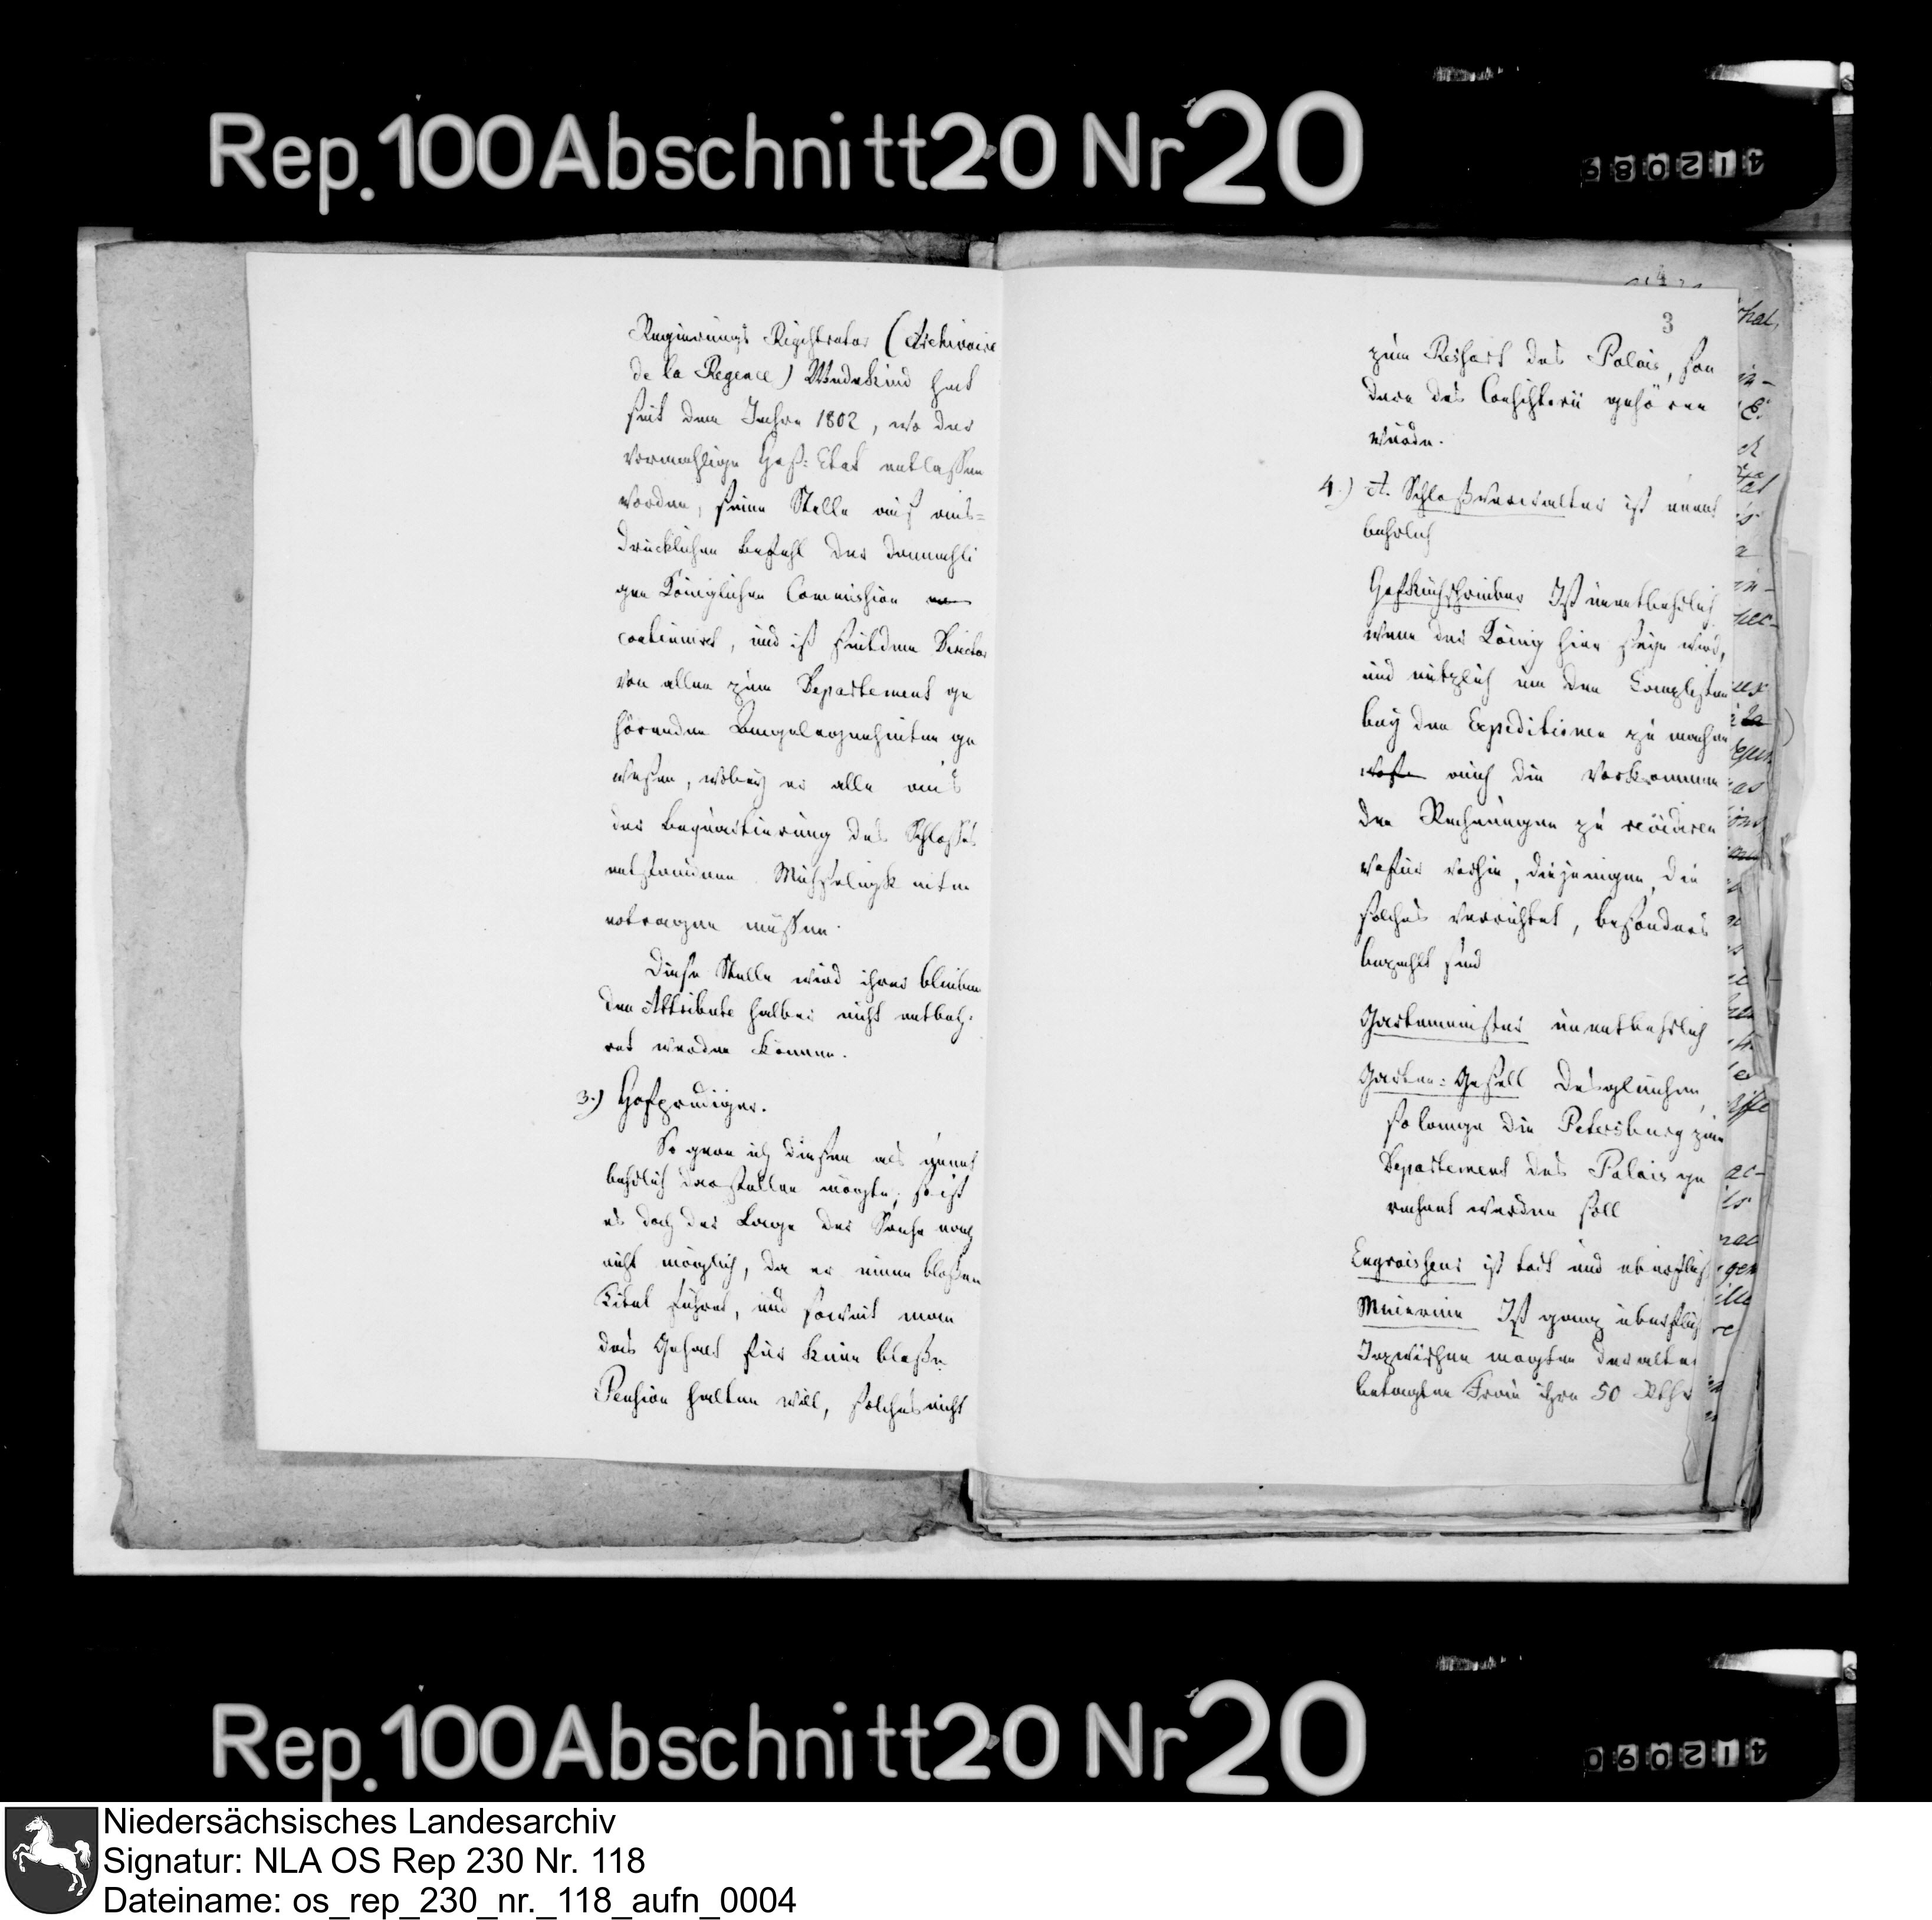 Rep. 100 Abschnitt 20 Nr 20
412089
Regierungs Registrator (Archivaire
de la Regence) Wedekind hat
seit dem Jahre 1802, wo der
vormahlige Hof: Etat entlassen
worden, seine Stelle auf aus=
drücklichen Befehl der damahli
gen Königlichen Commission
continuirt, und ist seitdem Director
von allen zum Departement ge
hörenden Angelegenheiten ge
wesen, wobey er alle aus
der Bequartierung des Schlosses
entstandene Mühseligkeiten
ertragen müssen.
Diese Stelle wird ihrer bleiben
den Attribute halber nicht entbeh=
ret werden können.
3.) Hofprediger.
So gern ich diesen als unent
behrlich darstellen mögte, so ist
es doch der Lage der Sache nach
nicht möglich, da er einen bloßen
Titel führet, und soweit man
das Gehalt für keine bloße
Pension halten will, solches nicht
3
zum Ressort des Palais, son
dern des Consistorii gehören
würde.
4.) A. Schloßverwalter ist unent
behrlich
Hofkuchschreiber Ist unentbehrlich
wenn der König hier seyn wird,
und nützlich um den
bey den Expeditionen zu machen
auch die vorkommen
den Rechnungen zu revidiren
wofür vorhin, diejenigen, die
solches verrichtet, besonders
bezahlt sind
Gartenmeister unentbehrlich
Garten: Gesell desgleichen,
so lange die Petersburg zum
Departement des Palais ge
rechnet werden soll
Engraisseur ist todt und überflüssig
Meierinn Ist ganz überflüssig
Inzwischen mögten der alten
betagten Frau ihre 50 Rthr
Rep. 100 Abschnitt 20 Nr 20
412090
Niedersächsisches Landesarchiv
Signatur: NLA OS Rep 230 Nr. 118
Dateiname: os_rep_230_nr._118_aufn_0004